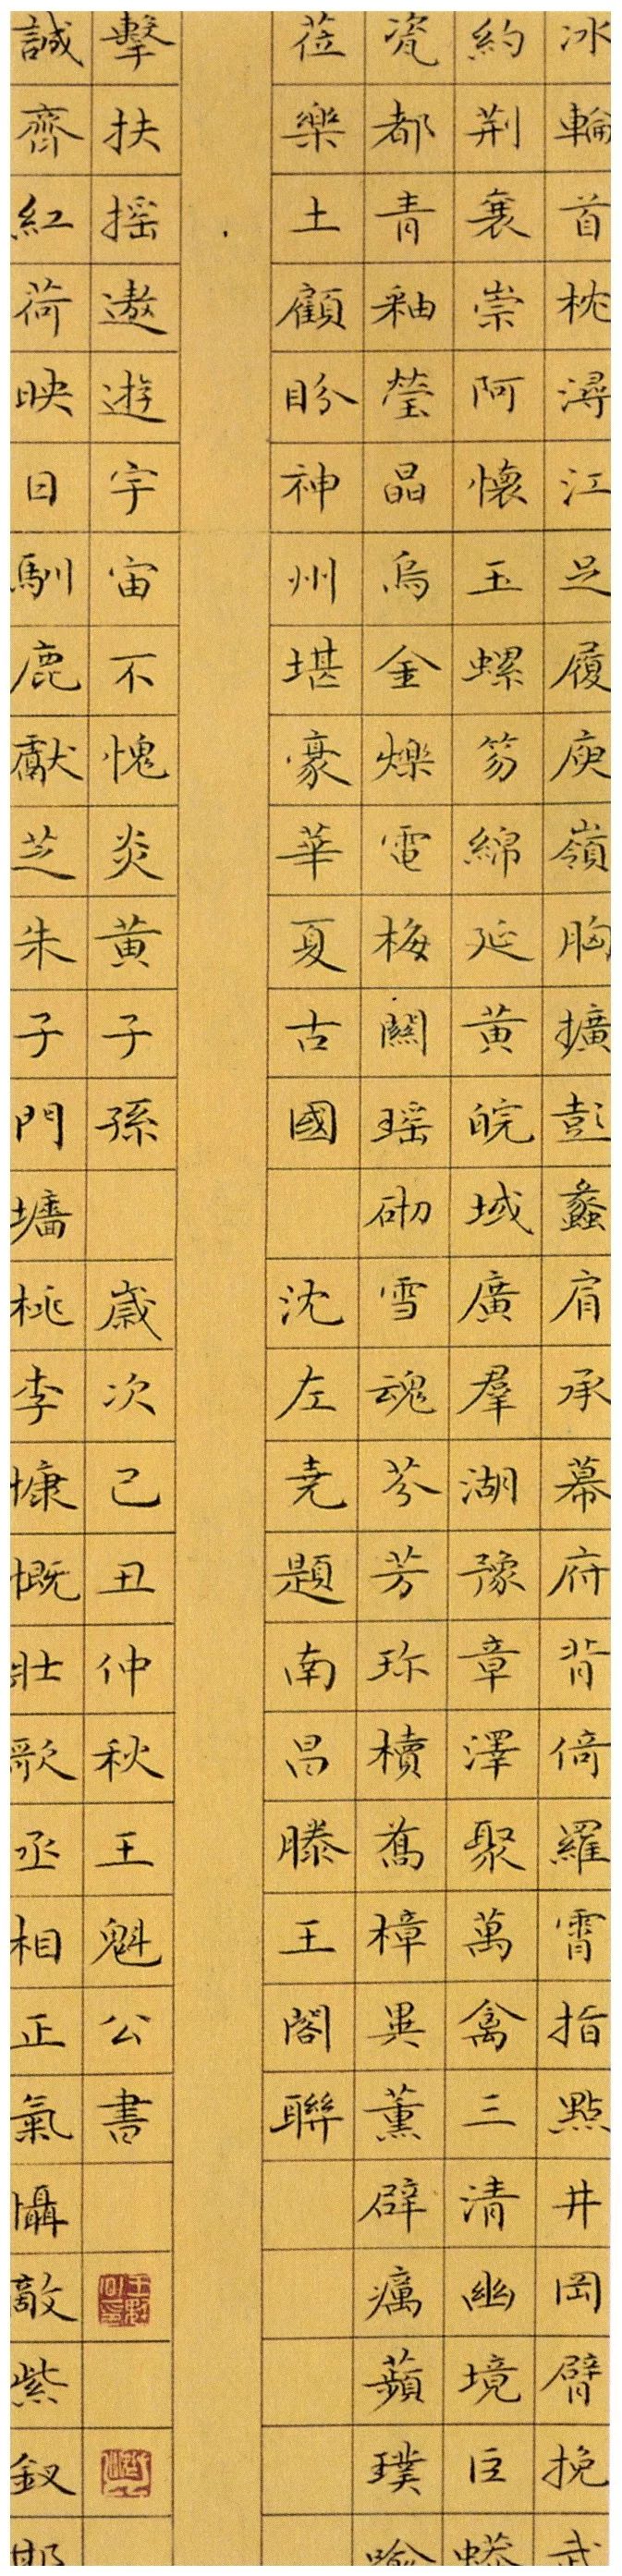 冰輪首枕潯江足履庾嶺胸擴彭蠡肩承幕府背倚羅霄指點井岡臂挽武
約荆襄崇阿懷玉螺笏綿延黃皖域廣羣湖豫章澤聚萬禽三清幽境巨蟒
瓷都青釉瑩晶烏金爍電梅關瑶砌雪魂芬芳珍櫝蔿樟異薰辟癘蘋璞喻
莅樂土顧盼神州堪豪華夏古國 沈左尧題南昌滕王閣聯
擊扶搖遨遊宇宙不愧炎黃子孫 歲次己丑仲秋王魁公書
誠齊紅荷映日馴鹿獻芝朱子門墻桃李慷慨壯歌丞相正氣懾敵紫釵